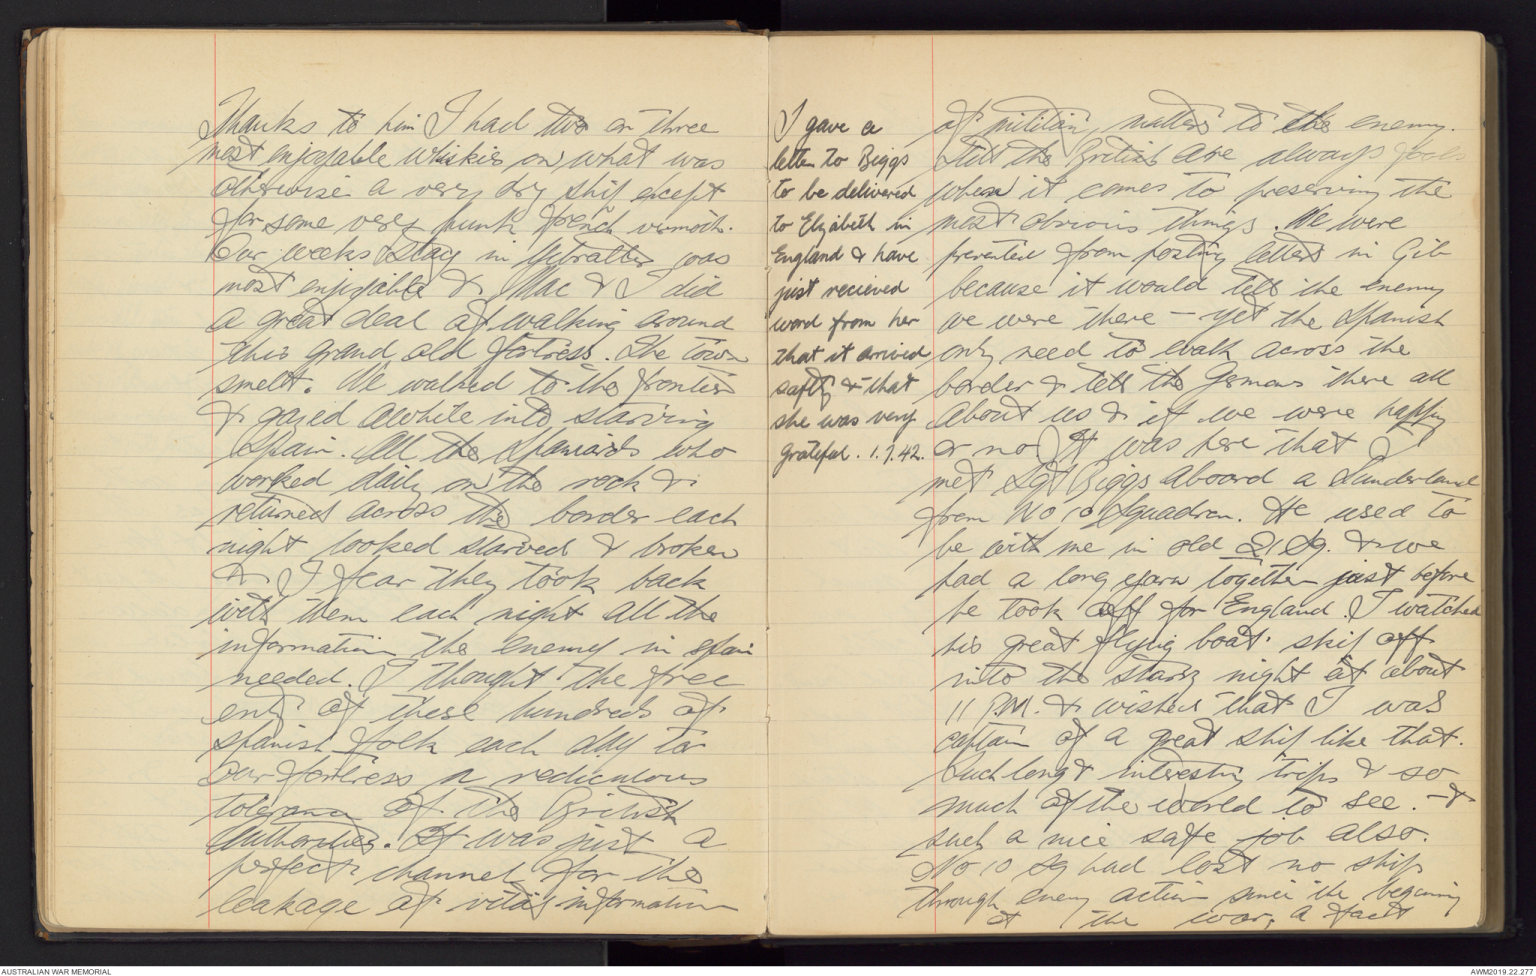 Thanks to him I had two or three
most enjoyable whiskies on what was
otherwise a very dry ship except
for some very punk french vermoth.
Our weeks stay in Gibralter was
most enjoyable & Mac & I did
a great deal of walking around
this grand old fortress. The town
smelt. We walked to the frontier
& gazed awhile into starving
Spain. All the Spaniards who
worked daily on the rock &
returned across the border each
night looked starved & broken
& I fear they took back
with them each night all the
information the enemy in Spain
needed. I thought the free
entry of these hundreds of
spanish folk each day to
our fortress a rediculous
tolerance of the British
Authorities. It was just a
perfect channel for the
leakage of vital information
I gave a
letter to Biggs
to be delivered
to Elizabeth in
England & have
just recieved
word from her
that it arrived
saftly & that
she was very
grateful. 1.7.42.
of military matters to the enemy.
Still the British are always fools
when it comes to preserving the
most obvious things. We were
prevented from posting letters in Gib
because it would tell the enemy
we were there – yet the Spanish
only need to walk across the
border & tell the Germans there all
about us & if we were happy
or no. It was here that I
met Sgt Biggs aboard a Sunderland
from No 10 Squadron. He used to
be with me in old 21 Sq. & we
had a long yarn together just before
he took off for England. I watched
his great flying boat ship off
into the starry night at about
11 P.M. & wished that I was
captain of a great ship like that.
Such long & interesting trips & so
much of the world to see. – &
such a nice safe job also.
No 10 Sq had lost no ships
through enemy action since the begining
of the war, a fact